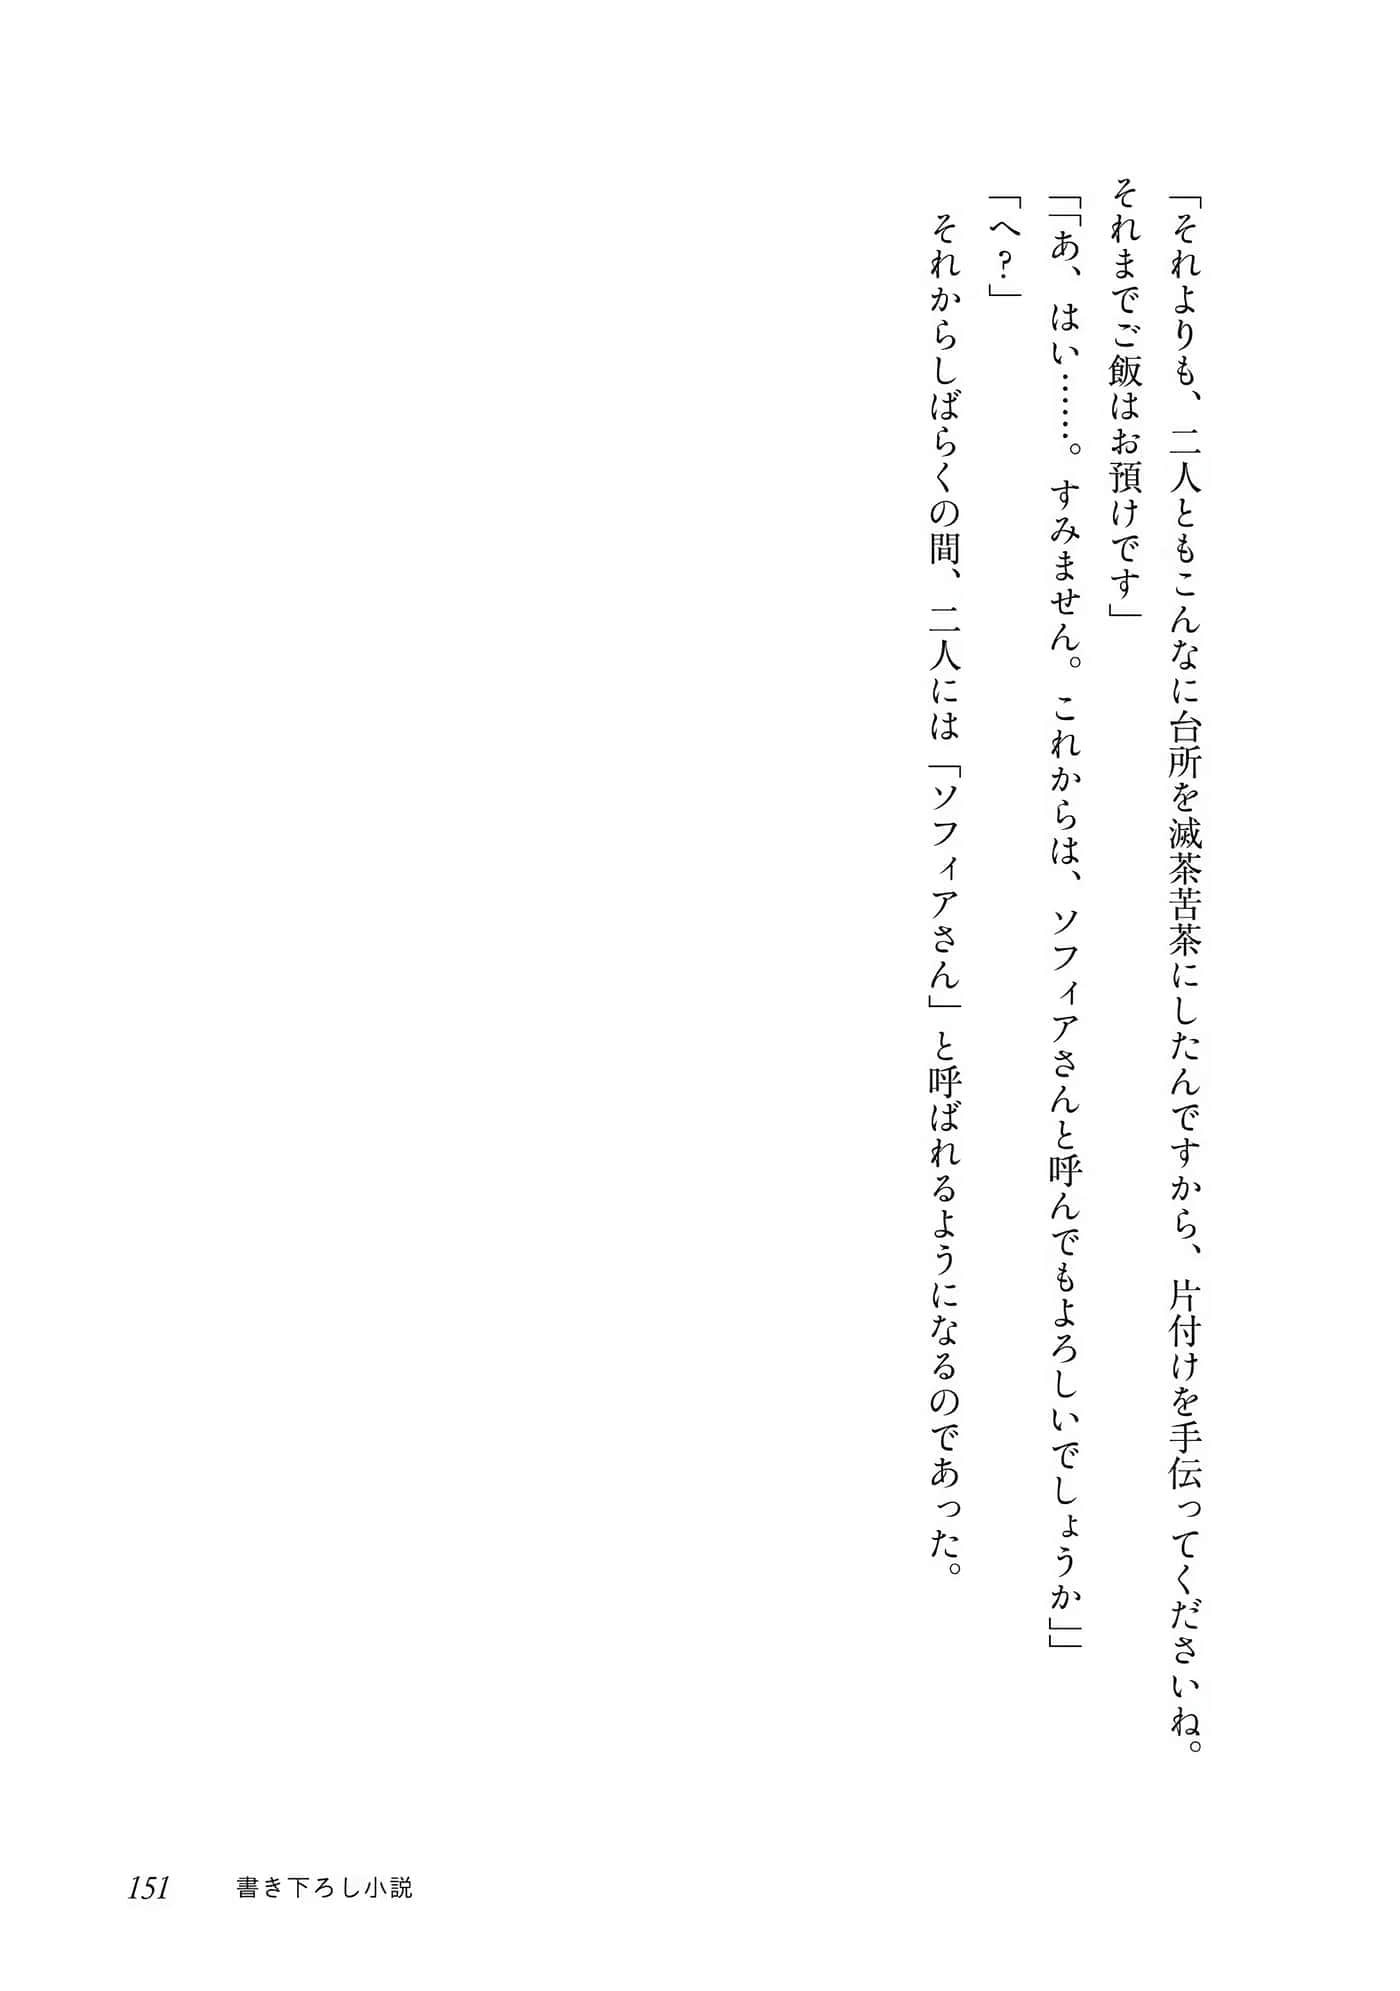 「それよりも、二人ともこんなに台所を滅茶苦茶にしたんですから、片付けを手伝ってくださいね。
それまでご飯はお預けです」
「「あ、はい……。すみません。これからは、ソフィアさんと呼んでもよろしいでしょうか」」
「へ？」
　それからしばらくの間、二人には「ソフィアさん」と呼ばれるようになるのであった。
151　書き下ろし小説